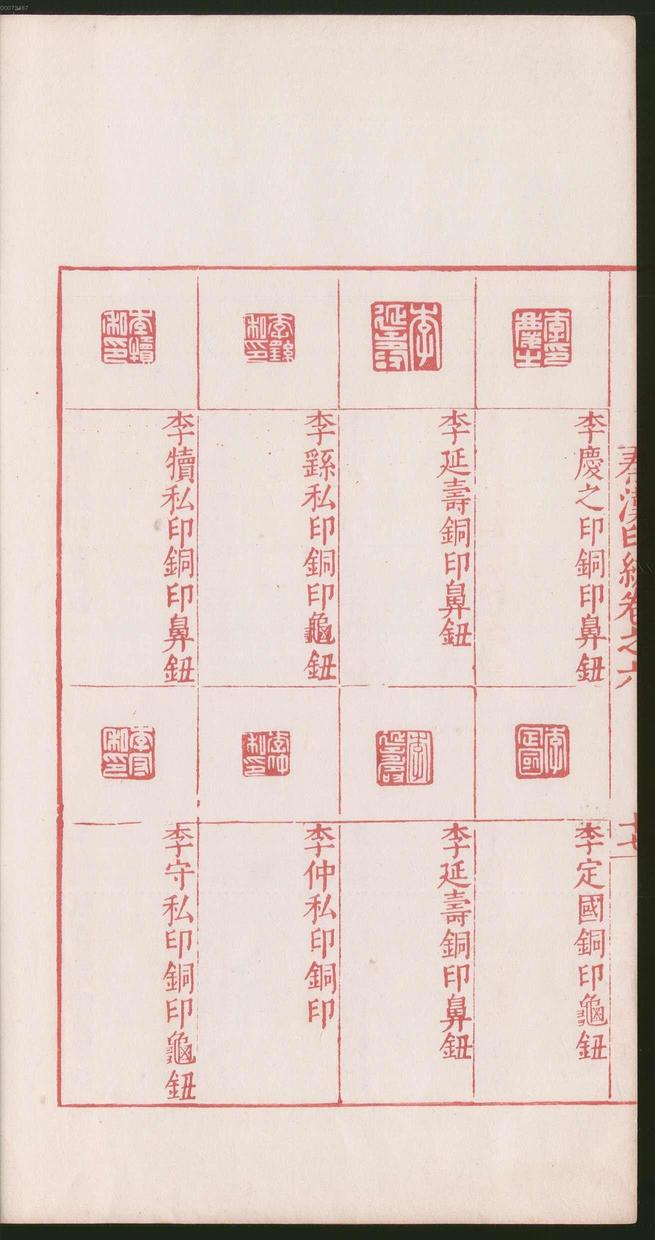 00073467
秦漢印統卷之六
十七
李慶之印銅印鼻鈕
李延壽銅印鼻鈕
李繇私印銅印龜鈕
李犢私印銅印鼻鈕
李定國銅印龜鈕
李延壽銅印鼻鈕
李仲私印銅印
李守私印銅印龜鈕